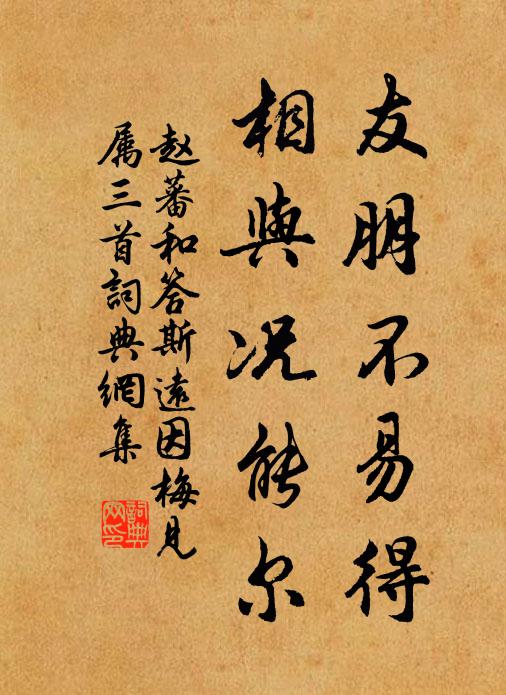 友朋不易得
相與况能尔
赵蕃和答斯遠因梅見
属三首詞典網集
詞典
网印